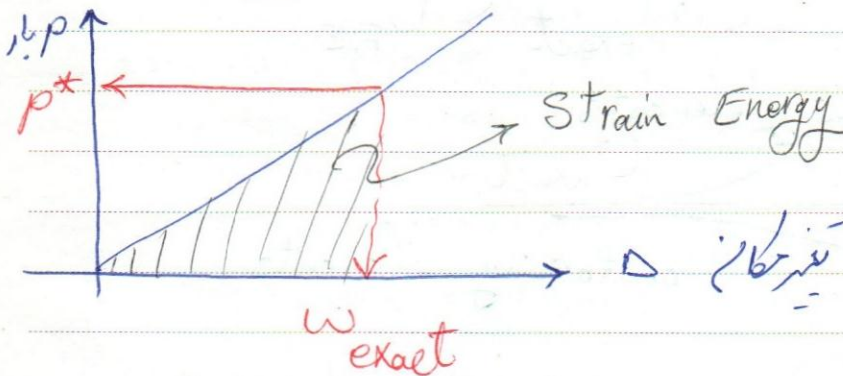 P بار
P*
Strain Energy
Δ تغییر مکان
w exact